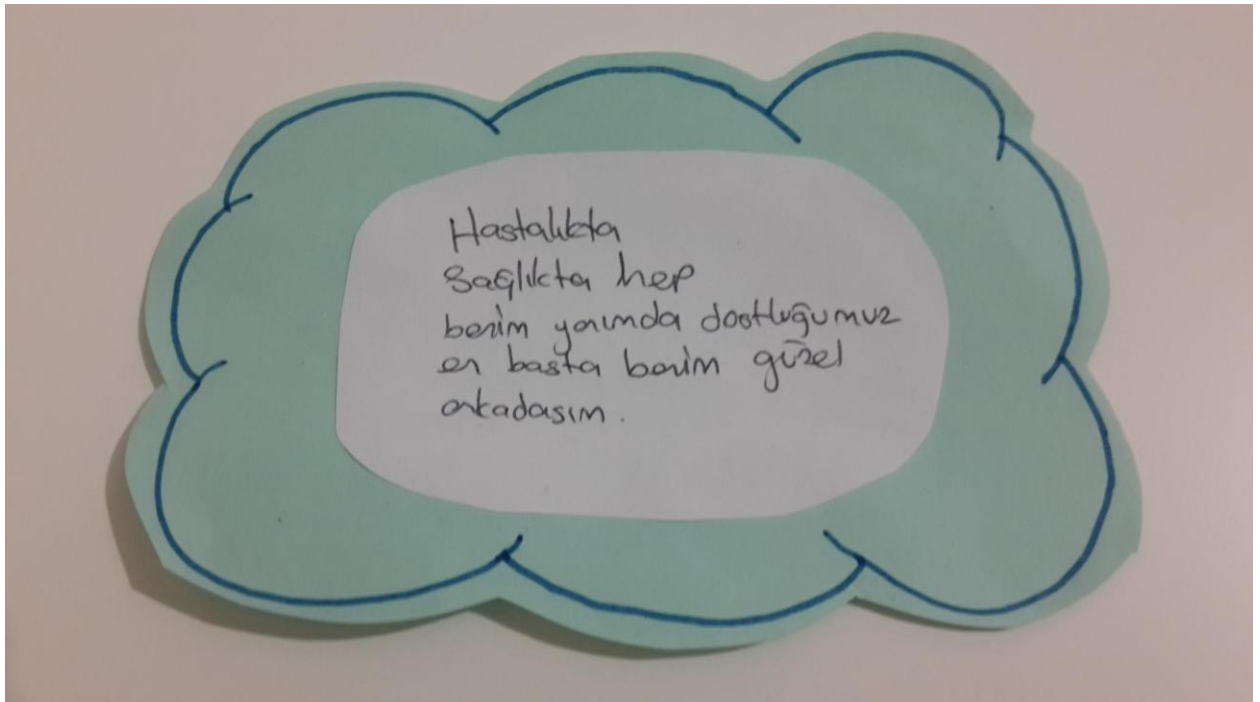 Hastalıkta
Sağlıkta hep
benim yanımda dostluğumuz
en başta benim güzel
arkadaşım.